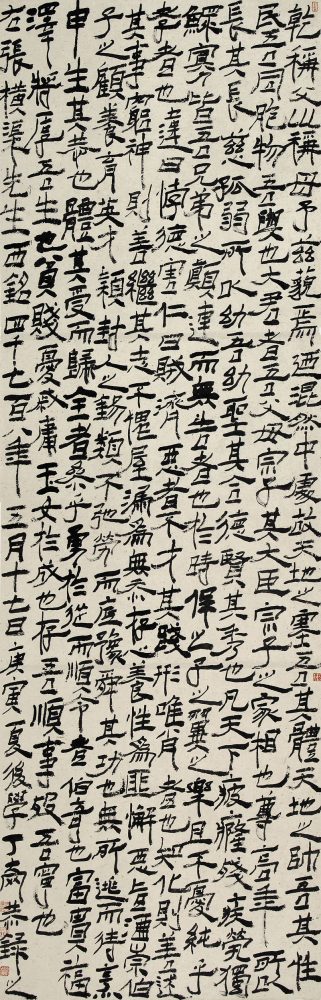 乾稱父巛稱母予茲藐焉迺混然中處故天地之塞吾其體天地之帥吾其性
民吾同胞物吾與也大君者吾父母宗子其大臣宗子之家相也尊高年所以
長其長慈孤弱所以幼吾幼聖其合德賢其秀也凡天下疲癃殘疾惸獨
鰥寡皆吾兄弟之顛連而無告者也於時保之子之翼也樂且不憂純乎
孝者也違曰悖德害仁曰賊濟惡者不才其踐形唯肖者也知化則善述
其事窮神則善繼其志不愧屋漏為無忝存心養性為匪懈惡旨酒崇伯
子之顧養育英才潁封人之錫類不弛勞而底豫舜其功也無所逃而待烹
申生其恭也體其受而歸全者參乎勇於從而順令者伯奇也富貴福
澤將厚吾生也貧賤憂戚庸玉女於成也存吾順事歿吾寧也
右張橫渠先生西銘四千七百八年三月十七日庚寅夏後學丁恭錄之